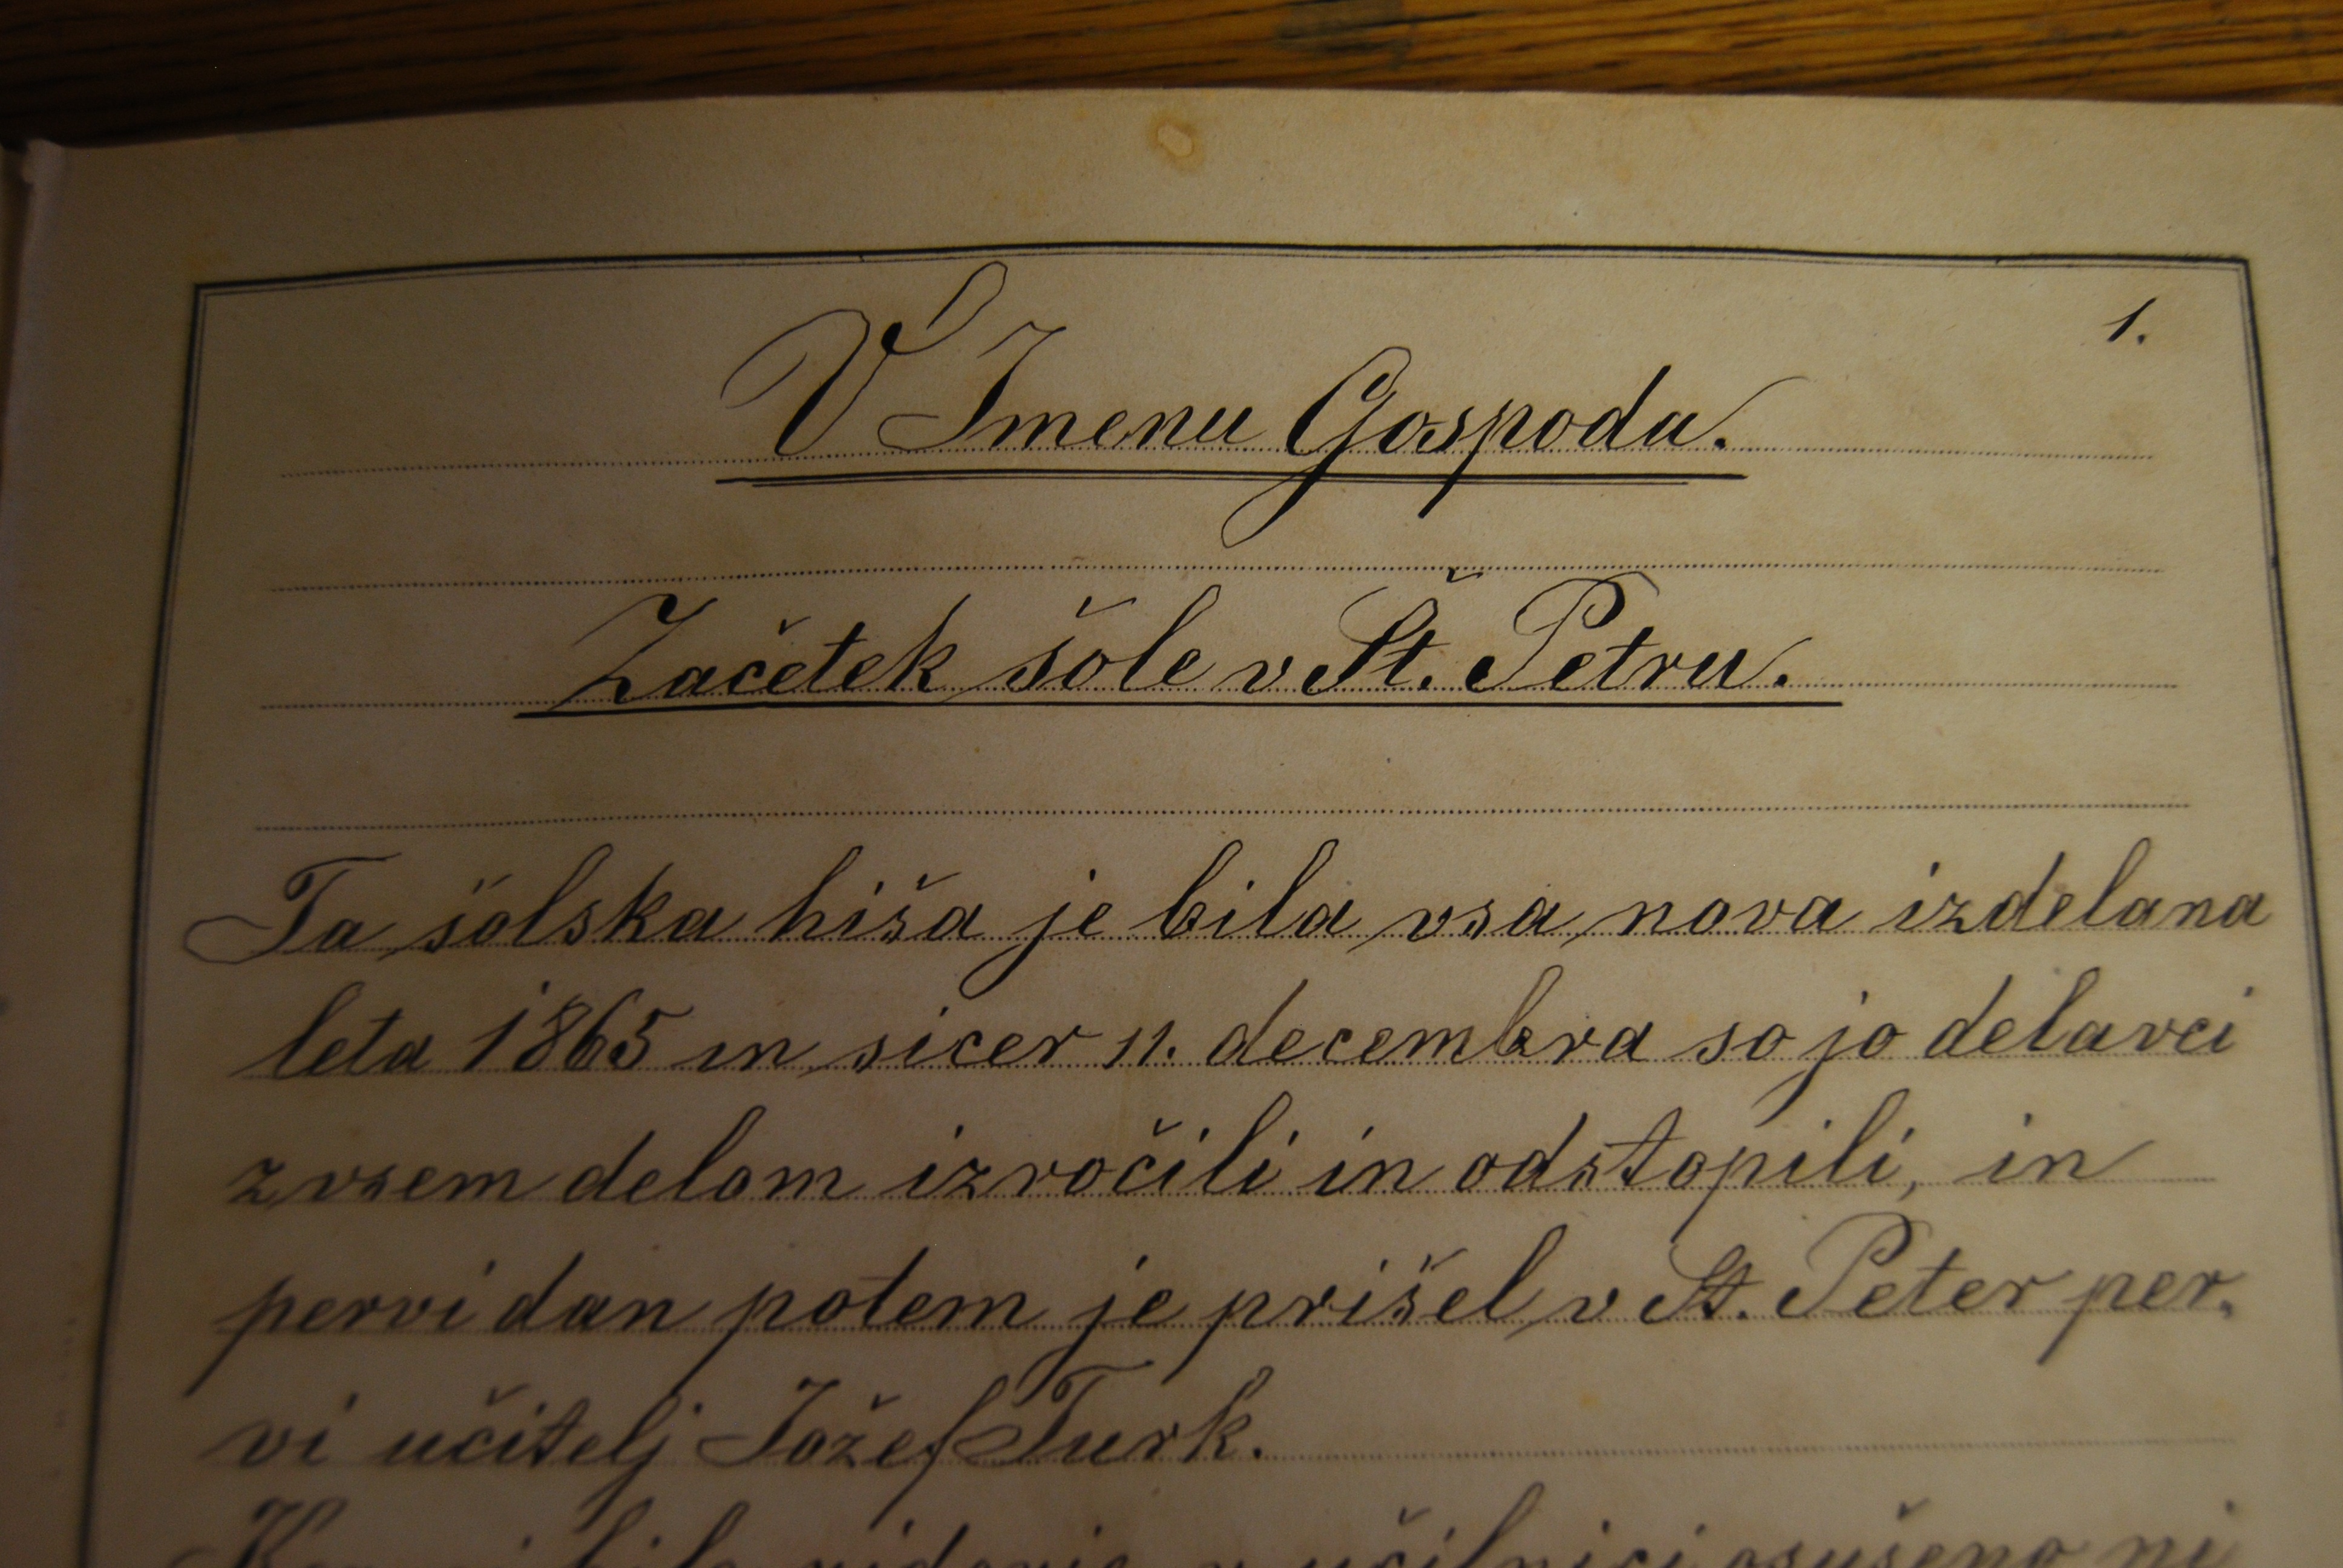 1.
V Imenu Gospoda.
Začetek šole v Št. Petru.
Ta šolska hiša je bila vsa nova izdelana
leta 1865 in sicer 11. decembra so jo delavci
z vsem delom izročili in odstopili, in
pervi dan potem je prišel v Št. Peter per„
vi učitelj Jožef Turk.
Ker ni bilo zidovje v učilnici osušeno ni